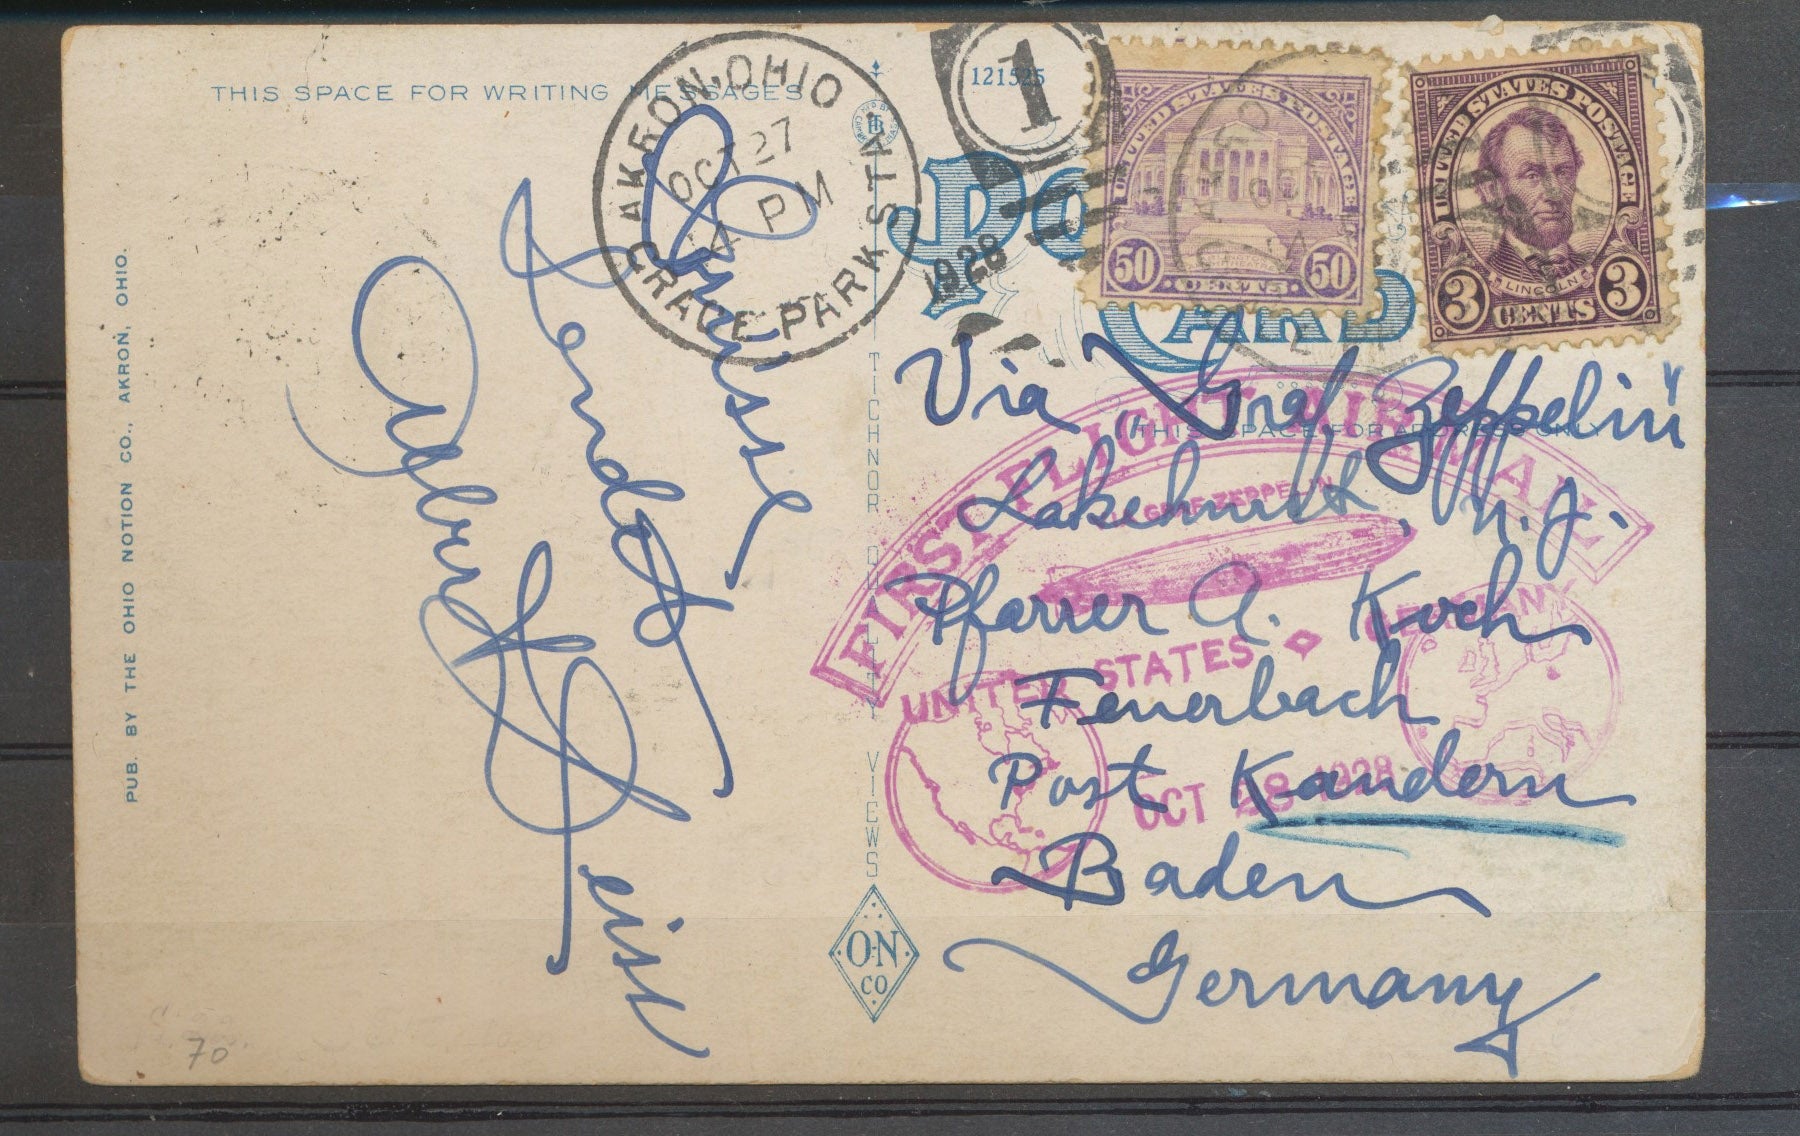 THIS SPACE FOR WRITING MESSAGES
PUB. BY THE OHIO NOTION CO., AKRON, OHIO.
Grüsse
sendet
Albert Geist
AKRON, OHIO
OCT 27
4 PM
1928
GRACE PARK STA.
1
121525
TICHNOR QUALITY VIEWS
O-N
CO
POST CARD
UNITED STATES POSTAGE
50 CENTS 50
UNITED STATES POSTAGE
LINCOLN
3 CENTS 3
THIS SPACE FOR ADDRESS ONLY
Via "Graf Zeppelin"
Lakehurst, N.J.
Pfarrer A. Koch
Feuerbach
Post Kandern
Baden
Germany
FIRST FLIGHT AIR MAIL
VIA GRAF ZEPPELIN
UNITED STATES GERMANY
OCT 28 1928
70